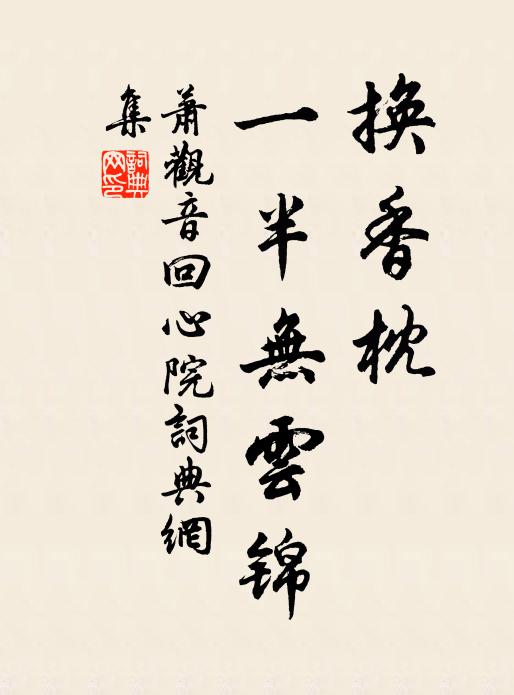 換香枕
一半無雲锦
蕭觀音回心院詞典網
集
詞典網印